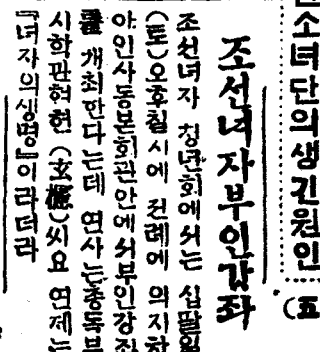 소녀단의생긴원인
(五
조선녀자부인강좌
조선녀자 청년회에서는 십팔일
(토)오후칠시에 전례에 의지하
야인사동본회관안에서부인강좌
를 개최한다는데 연사는총독부
시학관현헌(玄櫶)씨요 연제는
『녀자의생명』이라더라